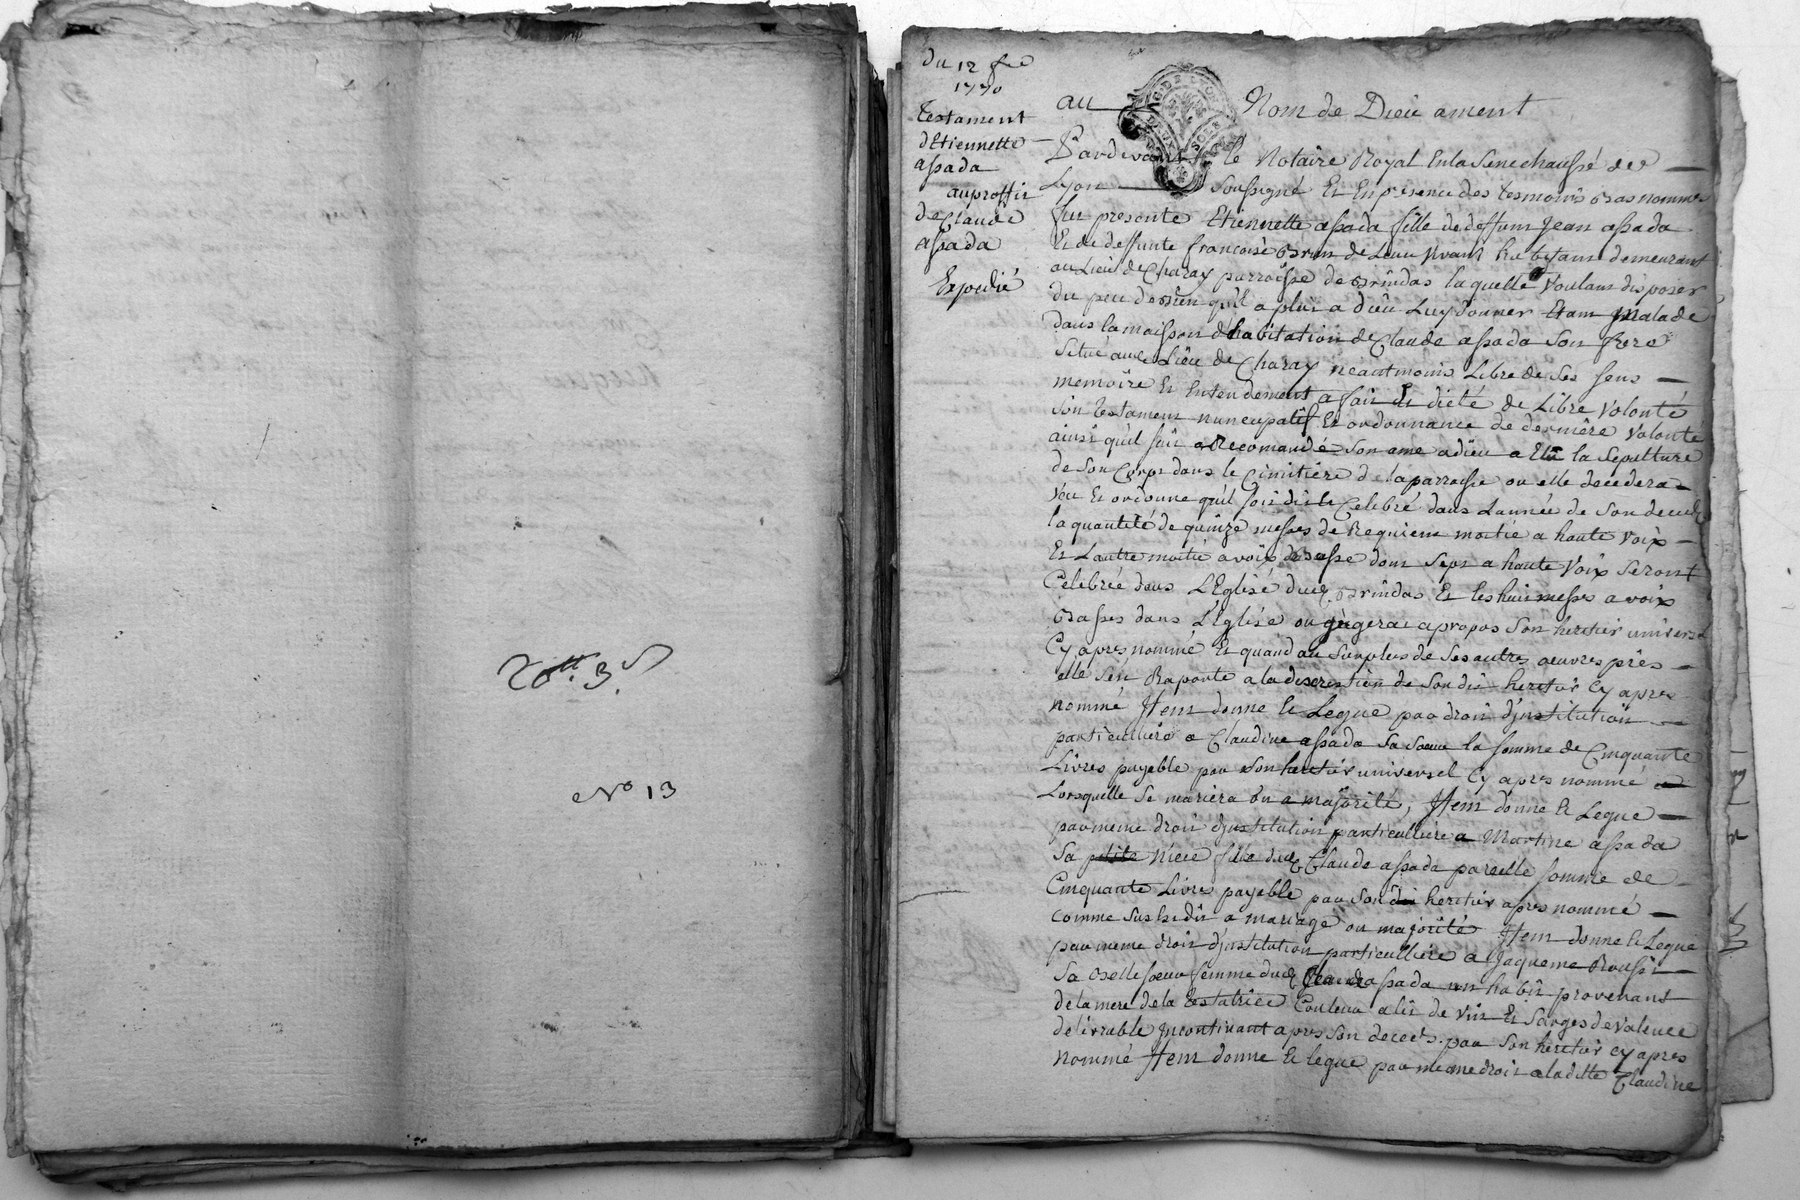 N° 13
du 12 fre
1770
testament
dEtiennette
assada
auproffit
de Claude
assada
Expedié
au Nom de Dieu ament
GDE LYON
DEUX SOLS
Pardevant le Notaire Royal En la Senechaussé de
Lyon Soussigné Et En presence des tesmoins Bas nommes
fut presente Etiennette assada fille de deffunt Jean assada
Et de deffunte francoise Brun de Leur vivant habitant demeurant
au Lieu de Charay parroisse de Brindas laquelle Voulant disposer
du peu de Bien qu'il a plut a dieu Luy donner Etant Malade
dans la maison d'habitation de Claude assada Son frere
Situé audt Lieu de Charay neantmoins Libre de Ses Sens
memoire Et Entendement a fait Et dicté de Libre Volonté
Son testament nuncupatif Et ordonnance de derniere Volonté
ainsi qu'il suit a Recomandé Son ame a dieu a Elu la Sepulture
de Son Corps dans le Cimitiere de la parroisse ou elle decedera
Veu Et ordonne qu'il soit dit Et Celebré dans Lannée de Son deced
la quantité de quinze messes de Requiem moitié a haute voix
Et Lautre moitié a voix Basse dont Sept a haute Voix Seront
Celebrée dans L'Eglise dudt Brindas Et les huit messes a voix
Basses dans L'Eglise ou jugerat apropos Son heritier universel
Cy apres nommé Et quand au Surplus de Ses autres oeuvres pies
elle S'en Raporte a la discrestion de Son dit heritier Cy apres
nommé Item donne Et Legue par droit d'institution
particulliere a Claudine assada Sa Soeur la somme de Cinquante
Livres payable par Son heritier universel Cy apres nommé
Lorsquelle Se mariera ou a majorité, Item donne Et Legue
par meme droit d'institution particulliere a Martine assada
Sa petite Niece fille dudt Claude assada pareille somme de
Cinquante Livres payable par Son dit heritier apres nommé
Comme Sus Est dit a mariage ou majorité Item donne Et Legue
par meme droit d'institution particulliere a Jaqueme
Sa Belle soeur femme dudt Claude assada un habit provenant
de la mere de la testatrice Couleur a lit de vin Et Sarges de Valence
delivrable Incontinant apres Son decets par Son heritier cy apres
nommé Item donne Et legue par meme droit a laditte Claudine